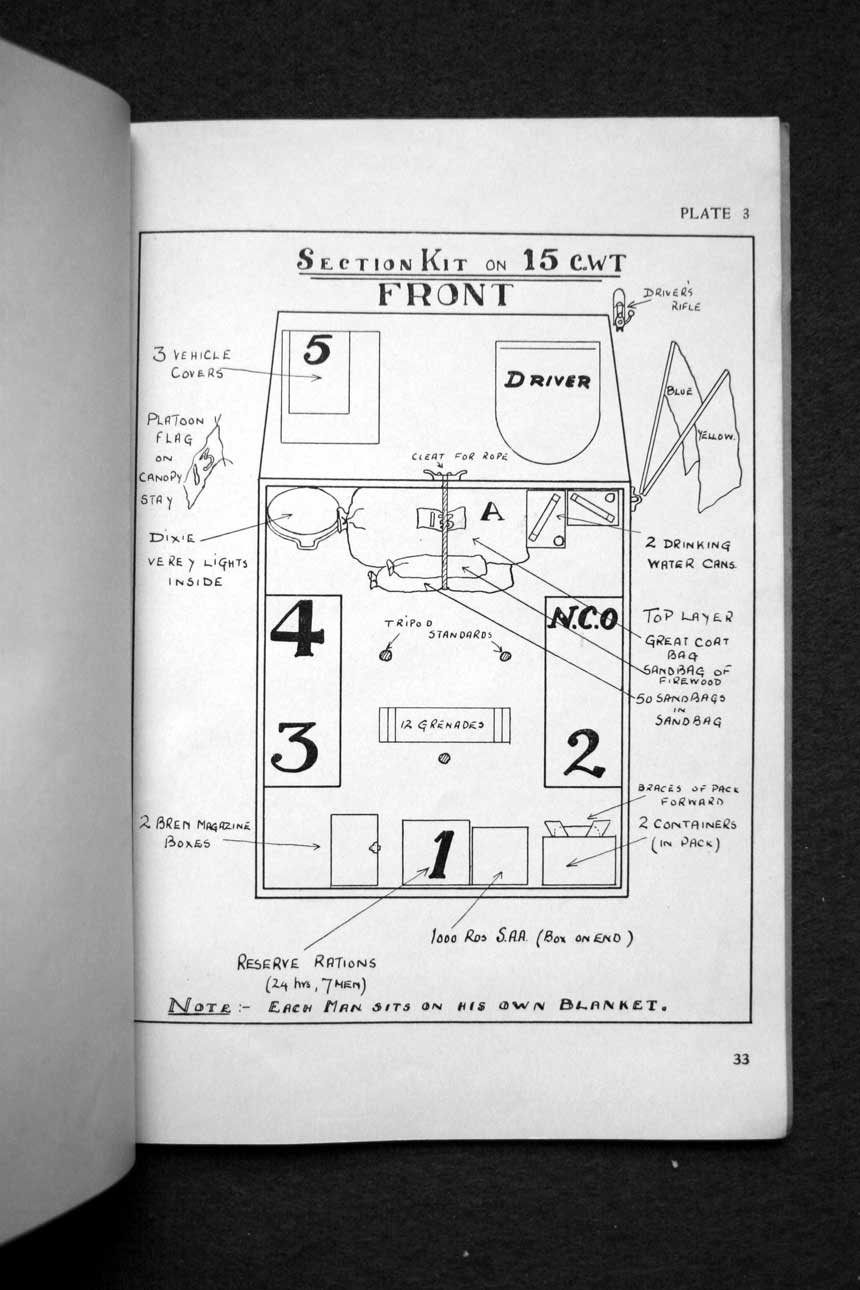 PLATE 3
SECTION KIT ON 15 C.WT
FRONT
DRIVER'S
RIFLE
3 VEHICLE
COVERS
5
DRIVER
BLUE
YELLOW.
PLATOON
FLAG
ON
CANOPY
STAY
13
CLEAT FOR ROPE
A
13
DIXIE
VEREY LIGHTS
INSIDE
2 DRINKING
WATER CANS.
4
N.C.O
TRIPOD
STANDARDS
TOP LAYER
GREAT COAT
BAG
SANDBAG OF
FIREWOOD
50 SANDBAGS
IN
SANDBAG
12 GRENADES
3
2
BRACES OF PACK
FORWARD
2 BREN MAGAZINE
BOXES
1
2 CONTAINERS
(IN PACK)
1000 RDS S.A.A. (BOX ON END)
RESERVE RATIONS
(24 hrs, 7 MEN)
NOTE :- EACH MAN SITS ON HIS OWN BLANKET.
33